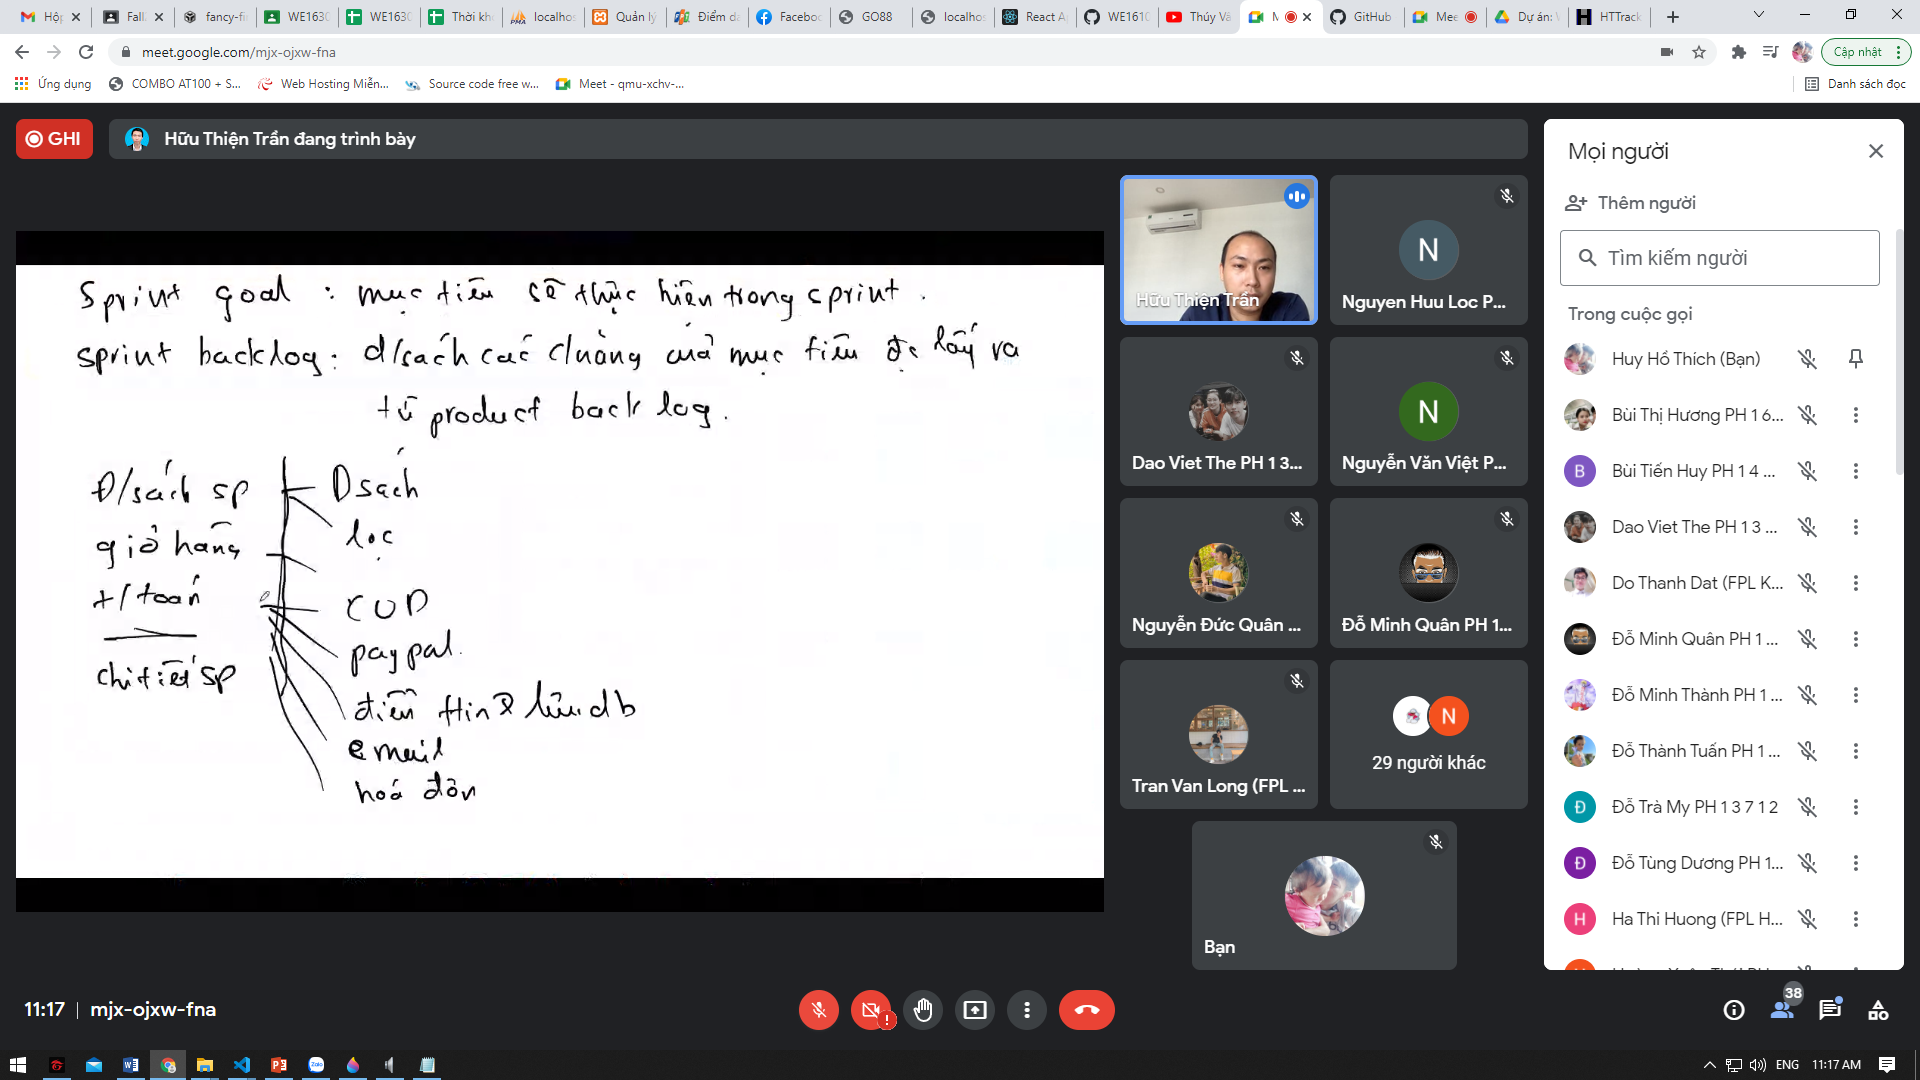 Hộp
Fall
fancy-fi
WE1630
WE1630
Thời kh
localhos
Quản lý
Điểm da
Faceboo
GO88
localhos
React A
WE1610
Thúy Vâ
M
GitHub
Mee
Dự án: V
HTTrack
meet.google.com/mjx-ojxw-fna
Cập nhật
Ứng dụng
COMBO AT100 + S...
Web Hosting Miễn...
Source code free w...
Meet - qmu-xchv-...
Danh sách đọc
GHI
Hữu Thiện Trần đang trình bày
Sprint goal : mục tiêu sẽ thực hiện trong sprint.
sprint backlog: d/sách các c/năng của mục tiêu đc lấy ra
từ product back log.
Đ/sách sp
giỏ hàng
t/toán
chi tiết sp
Dsách
lọc
COD
paypal.
điền ttin & lưu db
email
hoá đơn
Hữu Thiện Trần
N
Nguyen Huu Loc P...
Dao Viet The PH 1 3...
N
Nguyễn Văn Việt P...
Nguyễn Đức Quân ...
Đỗ Minh Quân PH 1...
Tran Van Long (FPL ...
N
29 người khác
Bạn
Mọi người
Thêm người
Tìm kiếm người
Trong cuộc gọi
Huy Hồ Thích (Bạn)
Bùi Thị Hương PH 1 6...
B
Bùi Tiến Huy PH 1 4 ...
Dao Viet The PH 1 3 ...
Do Thanh Dat (FPL K...
Đỗ Minh Quân PH 1 ...
Đỗ Minh Thành PH 1 ...
Đỗ Thành Tuấn PH 1 ...
Đ
Đỗ Trà My PH 1 3 7 1 2
Đ
Đỗ Tùng Dương PH 1...
H
Ha Thi Huong (FPL H...
11:17 | mjx-ojxw-fna
38
ENG
11:17 AM